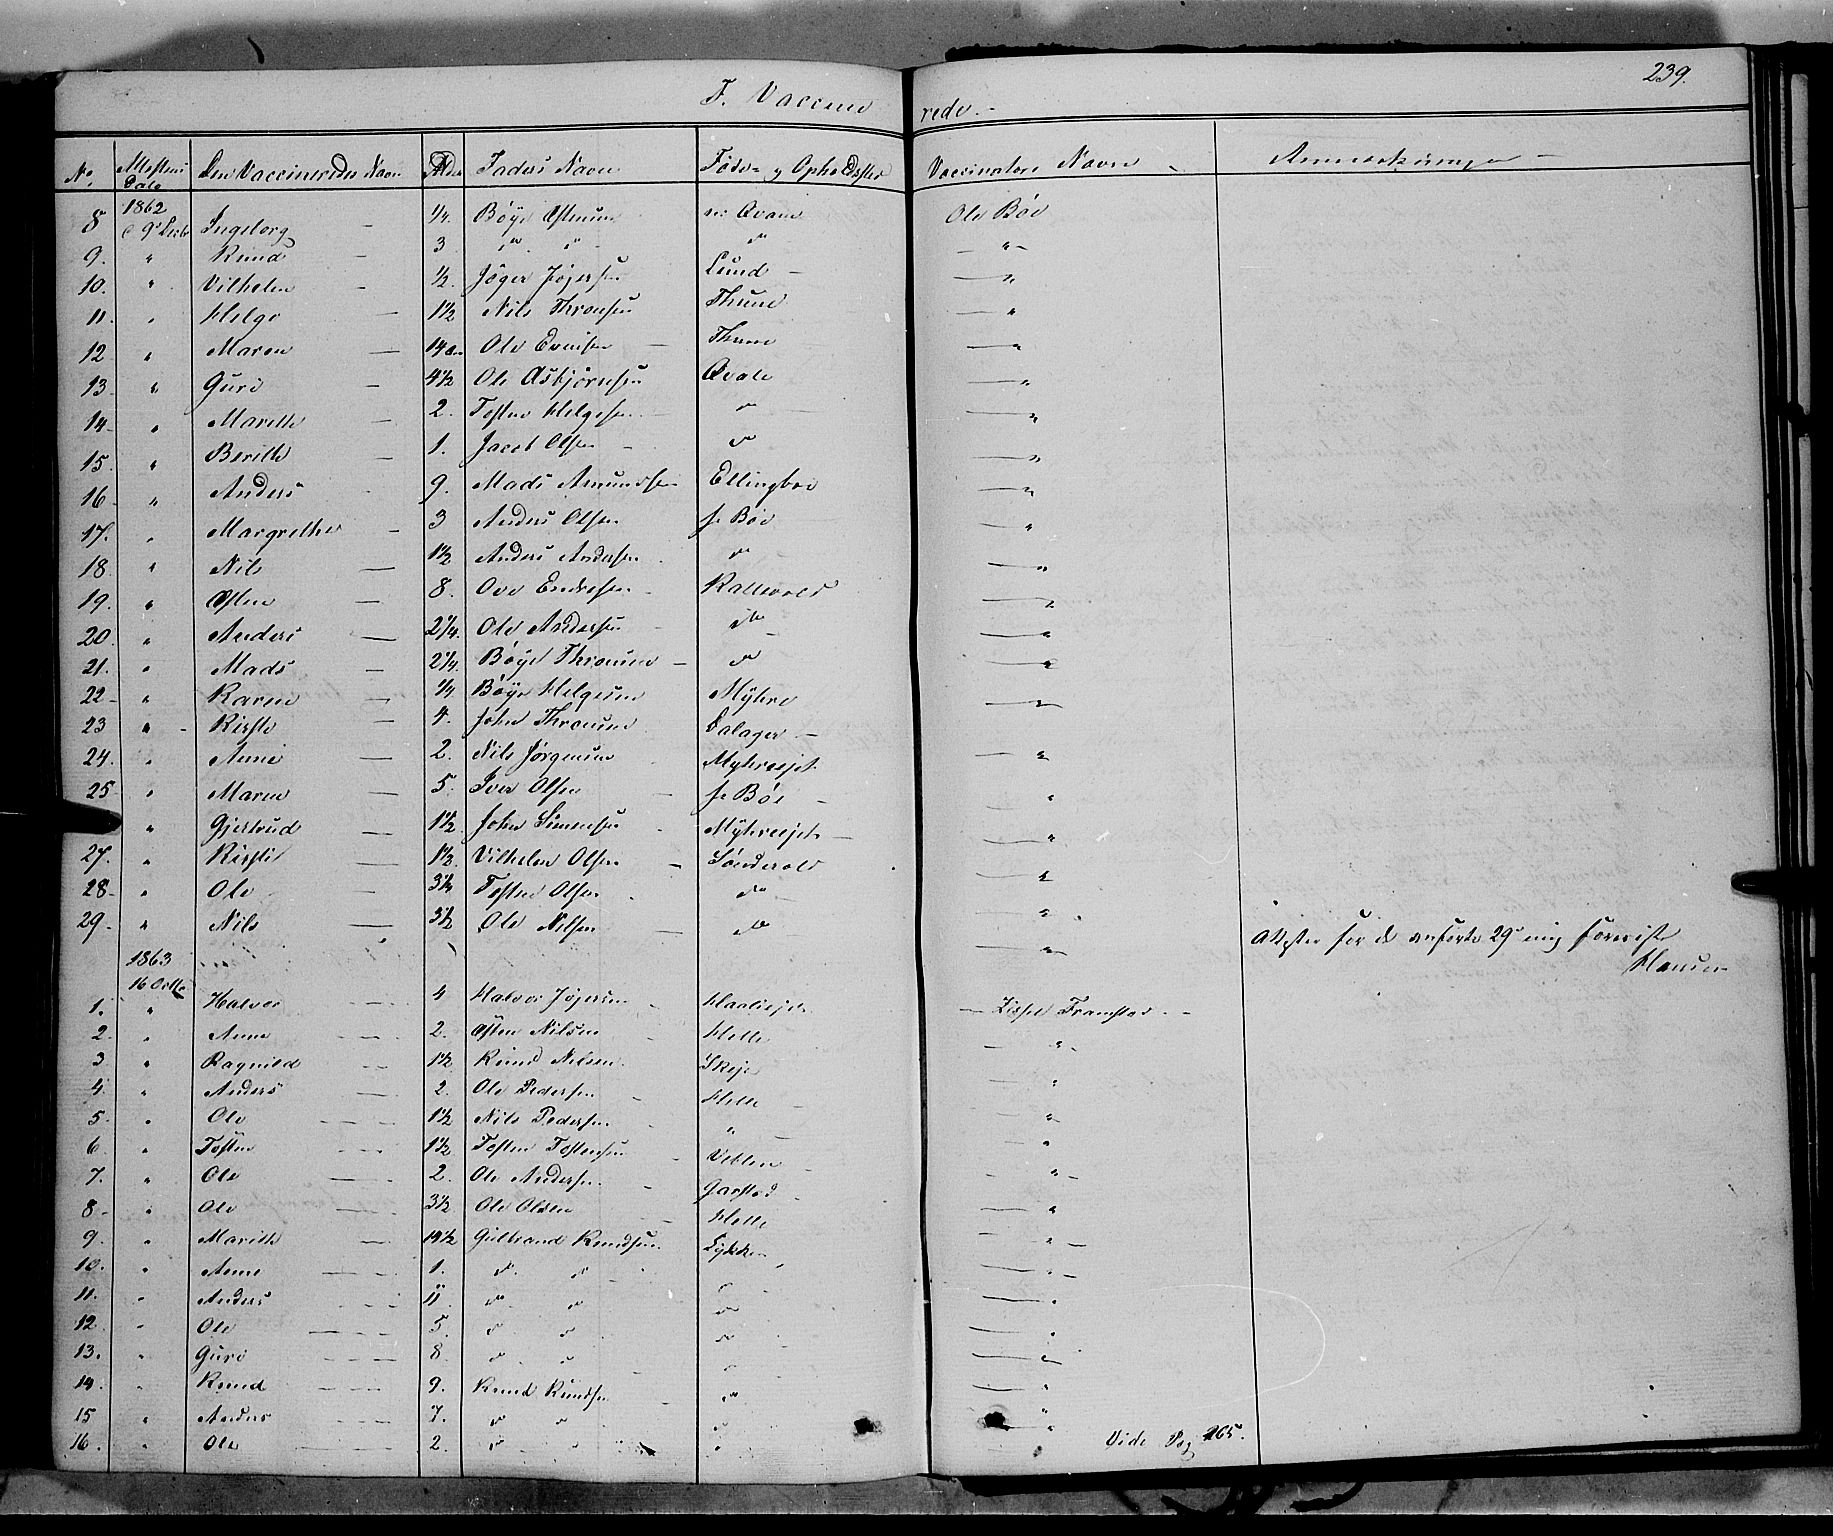 239.
F. Vaccinerede.
No. Attestens Dato Den Vaccineredes Navn Alder Faders Navn Føde- og Opholdssted Vaccinators Navn Anmærkninger
1862
8 9 Ingeborg — 1/4. Bøye Østensen Qvam Ole Bøe
9. " Knud — 3 " " do — " —
10. " Vilhelm — 1/2. Jøger Jøgersen Lund — — "
11. " Helge — 1 1/2 Nils Thronsen Thune — "
12 " Maren — 14 Ole Evensen — Thune — "
13 " Guri — 4 1/2 Ole Asbjørnsen Qvale — "
14 " Marith — 2. Tosten Helgesen do — "
15. " Berith — 1. Jacob Olsen — do — "
16 " Anders — 9. Mads Amundsen Ellingboe — "
17. " Margrethe — 3 Anders Olsen Bøe — "
18 " Nils — 1 1/2 Anders Andersen do — "
19. " Østen — 8. Ove Endresen Kaltevold — "
20 " Anders — 2 1/4. Ole Andersen do — "
21. " Mads — 2 1/4. Bøye Thronsen — do — "
22 " Karen — 1/4 Bøye Helgesen Myhre — "
23 " Kirsti — 4. John Thronsen Dalager —
24. " Anne — 2. Nils Jørgensen Myhreejet — "
25 " Maren 5. Iver Olsen Bøe — "
" Gjertrud — 1 1/2 John Simensen Myhreejet — — "
27. " Kirsti — 1 1/2. Vilhelm Olsen Sønderold — "
28 " Ole — 3 1/2 Tosten Olsen do — "
29. " Nils — 3 1/2 Ole Nilsen do — " Attester for de anførte 29 mig foreviist
Hansen
1863
16
1. " Halvor 4 Halvor Jøgersen Haaliejet — Lisse Framstad —
2. " Anne 2. Østen Nilsen Helle — "
3 " Ragnild 1 1/2 Knud Nilsen. Skeje — "
4. " Anders 2. Ole Pedersen Helle — "
5. " Ole 1 1/2 Nils Pedersen " — "
6. " Tosten 1 1/2 Tosten Tostensen Veblen — "
7. " Ole 2. Ole Andersen Garstad — "
8 " Ole 3 1/2 Ole Olsen Helle — "
9. " Marith 14 1/2 Gulbrand Knudsen Lykken — "
10. " Anne 1. do do " — "
11. " Anders 11 do do do — "
12. " Ole 5. do do do — "
13. " Guri 8 do do do — "
14 " Knud 9. Knud Knudsen do — "
15 " Anders 7. do do do — "
16. " Ole 2. do do " — "
Vide Pag 265.